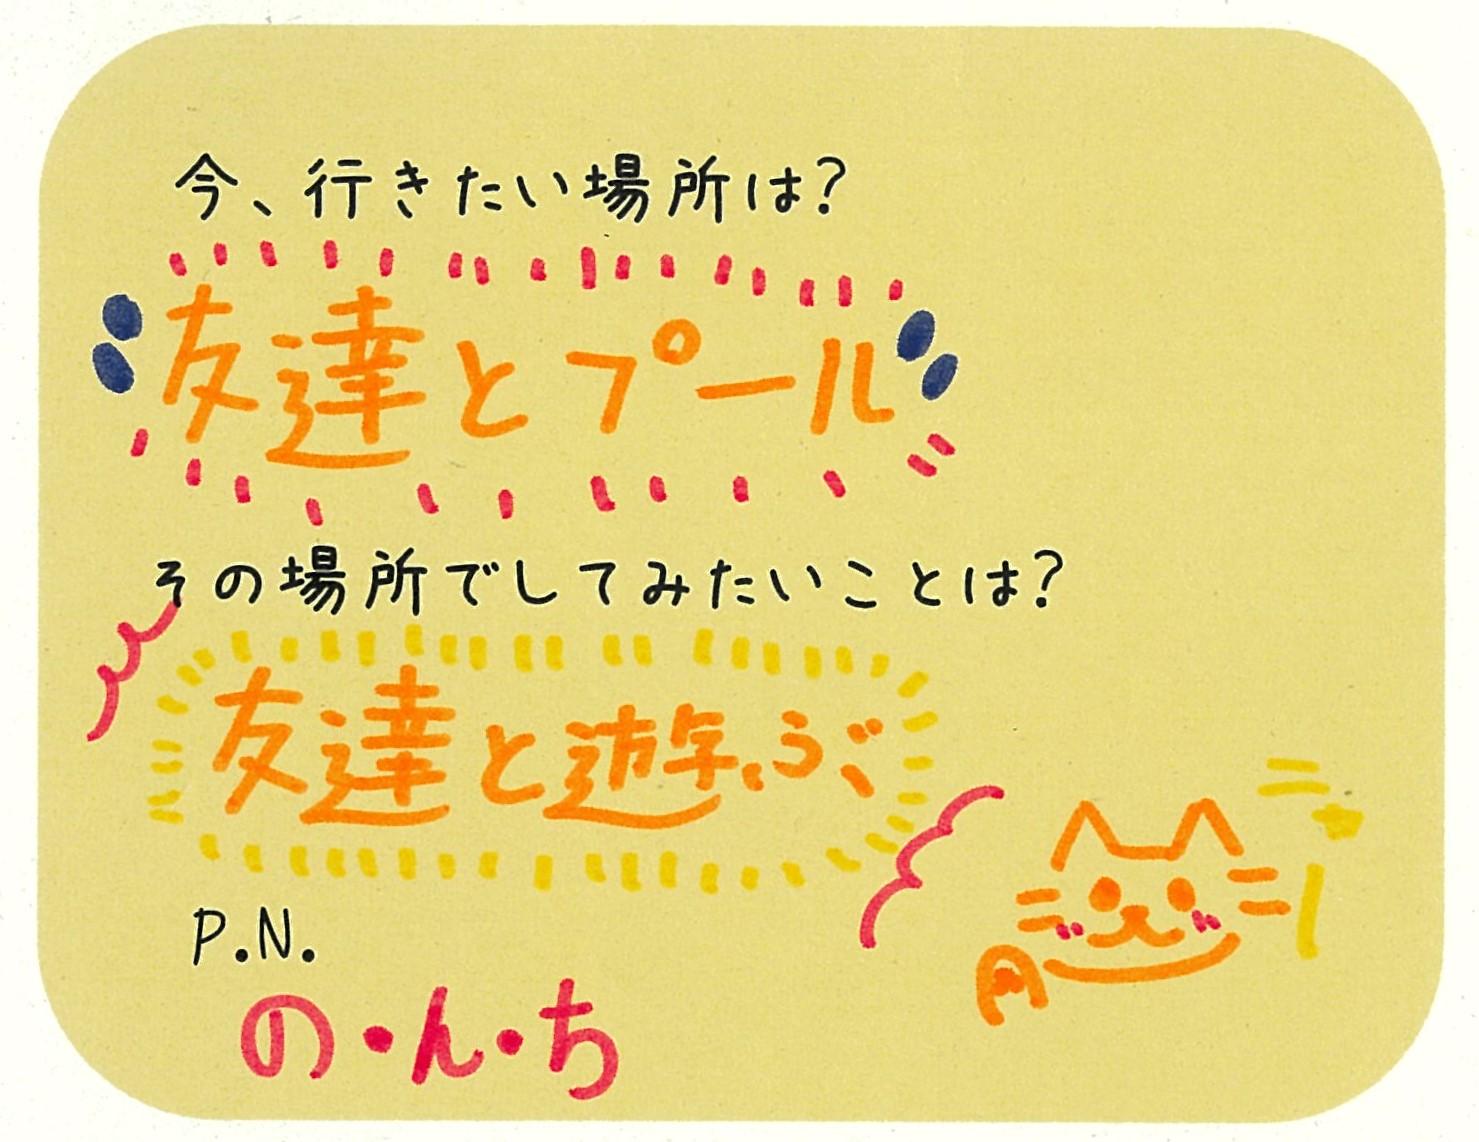 今、行きたい場所は?
友達とプール
その場所でしてみたいことは?
友達と遊ぶ
P.N.
の・ん・ち